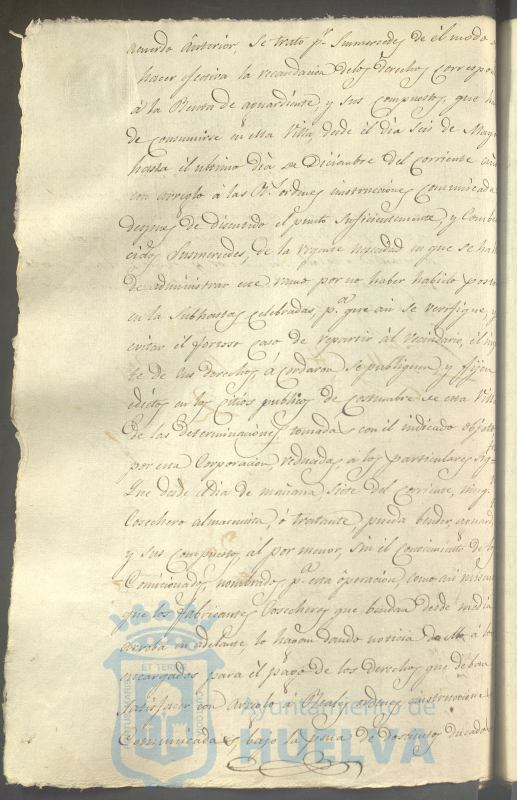 acuerdo anterior, se trató pr. Sumercedes de el modo
hacer efectiva la recaudacion delos derechos correspon
á la Renta de aguardiente, y sus compuestos, que ha
de consumirse en esta Villa, desde el dia Seis de Mayo
hasta el ultimo dia de Diciembre del corriente
con arreglo á las Rs. ordenes instrucciones comunicada
despues de discutido el punto suficientemente, y Combe
cidos Susmercedes, de la urgente necesidad en que se ha
de administrar este ramo, por no haber habido postor
en la Subhastas celebradas, pa. que asi se verifique, y
evitar el forzoso caso de repartir al Vecindario, el
te de sus derechos, ácordaron se publiquen, y fijen
edictos en los Sitios publicos de costumbre de esta Villa
De las determinaciones tomadas con el indicado objeto
por esta Corporacion, reducidas, á los particulares sig
Que desde el dia de mañana Siete del corriente, ning
Cosechero almacenista, ó tratante, pueda bender aguard
y sus compuestos, al por menor, sin el conocimiento de los
Comicionados, nombrados pa. esta operacion, como asi mismo
que los fabricantes Cosecheros que bendan desde media
arroba en adelante, lo hagan dando noticia de ello, á los
encargados para el pago de los derechos que deban
satisfacer con Arreglo á Reales ordenes instrucciones
Comunicadas, bajo la pena de doscientos ducados
ET TERRE
Ayuntamiento de
HUELVA